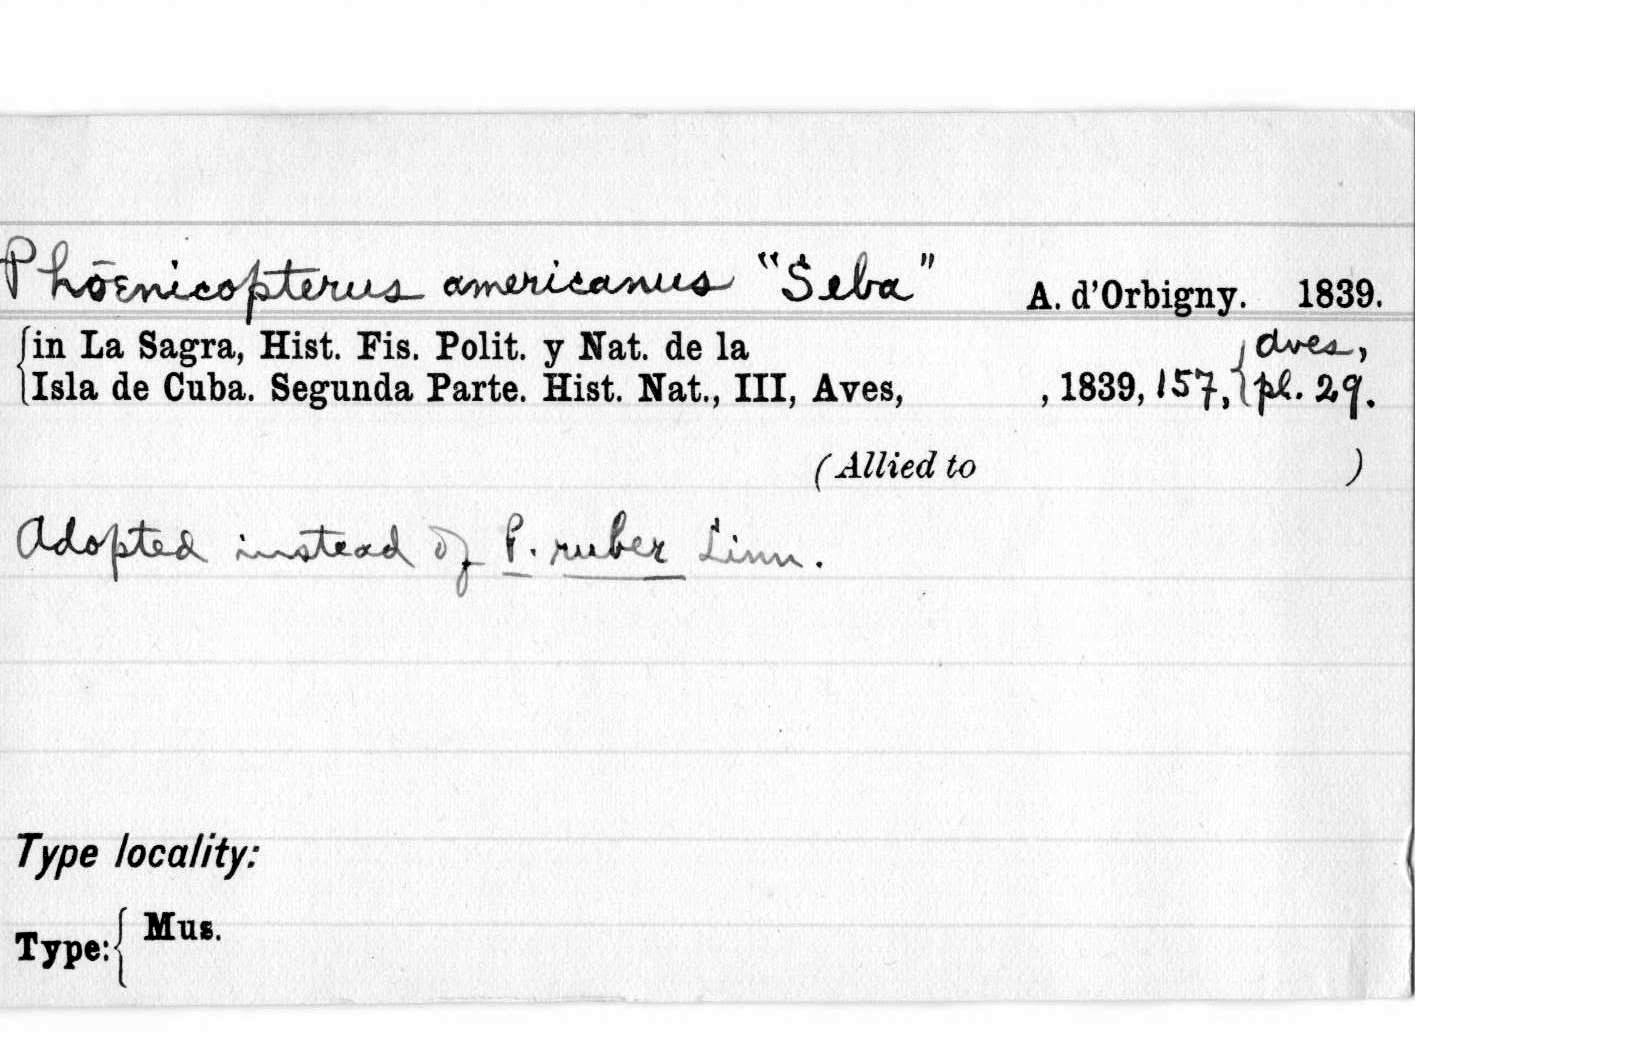 Phoenicopterus americanus "Seba" A. d'Orbigny. 1839.
{in La Sagra, Hist. Fis. Polit. y Nat. de la { aves,
Isla de Cuba. Segunda Parte. Hist. Nat., III, Aves, , 1839, 157, pl. 29.
(Allied to )
Adopted instead of P. ruber Linn.
Type locality:
Type: { Mus.